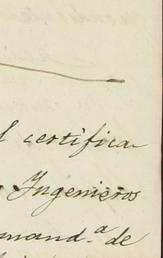 l certifica
Ingenieros
mand.ª de